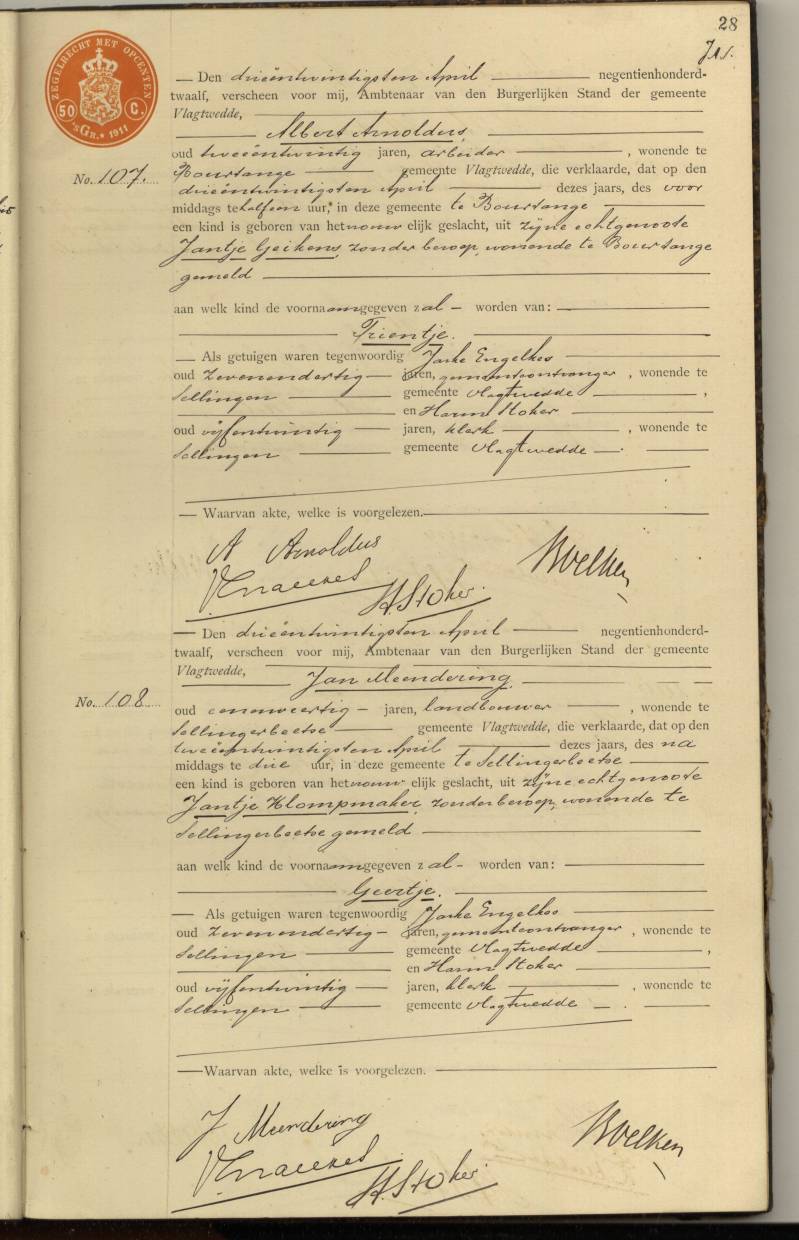 28
ZEGELRECHT MET OPCENTEN
50 C.
GR. 1911
— Den drieëntwintigsten April — negentienhonderd-
twaalf, verscheen voor mij, Ambtenaar van den Burgerlijken Stand der gemeente
Vlagtwedde,
Albert Arnoldus,
oud tweeëntwintig jaren, arbeider —, wonende te
No. 107.
Bourtange — gemeente Vlagtwedde, die verklaarde, dat op den
drieëntwintigsten April — dezes jaars, des voor
middags te half een uur, in deze gemeente te Bourtange —
een kind is geboren van het vrouw elijk geslacht, uit zijne echtgenoote
Jantje Geikens, zonder beroep, wonende te Bourtange
gemeld —
aan welk kind de voornaam gegeven zal — worden van: —
Trientje.
— Als getuigen waren tegenwoordig Jarke Engelkes —
oud zevenendertig — jaren, gemeenteontvanger, wonende te
Sellingen — gemeente Vlagtwedde —,
en Harm Stoker —
oud vijfentwintig — jaren, klerk —, wonende te
Sellingen — gemeente Vlagtwedde —.
— Waarvan akte, welke is voorgelezen. —
A Arnoldus
H. Stoker.
— Den drieëntwintigsten April — negentienhonderd-
twaalf, verscheen voor mij, Ambtenaar van den Burgerlijken Stand der gemeente
Vlagtwedde,
Jan Meendering.
No. 108
oud eenenveertig — jaren, landbouwer —, wonende te
Sellingerbeetse — gemeente Vlagtwedde, die verklaarde, dat op den
tweeëntwintigsten April — dezes jaars, des na
middags te drie uur, in deze gemeente te Sellingerbeetse —
een kind is geboren van het vrouw elijk geslacht, uit zijne echtgenoote
Jantje Klompmaker, zonder beroep, wonende te
Sellingerbeetse gemeld —
aan welk kind de voornaam gegeven zal — worden van: —
Geertje.
— Als getuigen waren tegenwoordig Jarke Engelkes —
oud zevenendertig — jaren, gemeenteontvanger, wonende te
Sellingen — gemeente Vlagtwedde —,
en Harm Stoker —
oud vijfentwintig — jaren, klerk —, wonende te
Sellingen — gemeente Vlagtwedde —.
— Waarvan akte, welke is voorgelezen. —
J Meendering
H. Stoker.